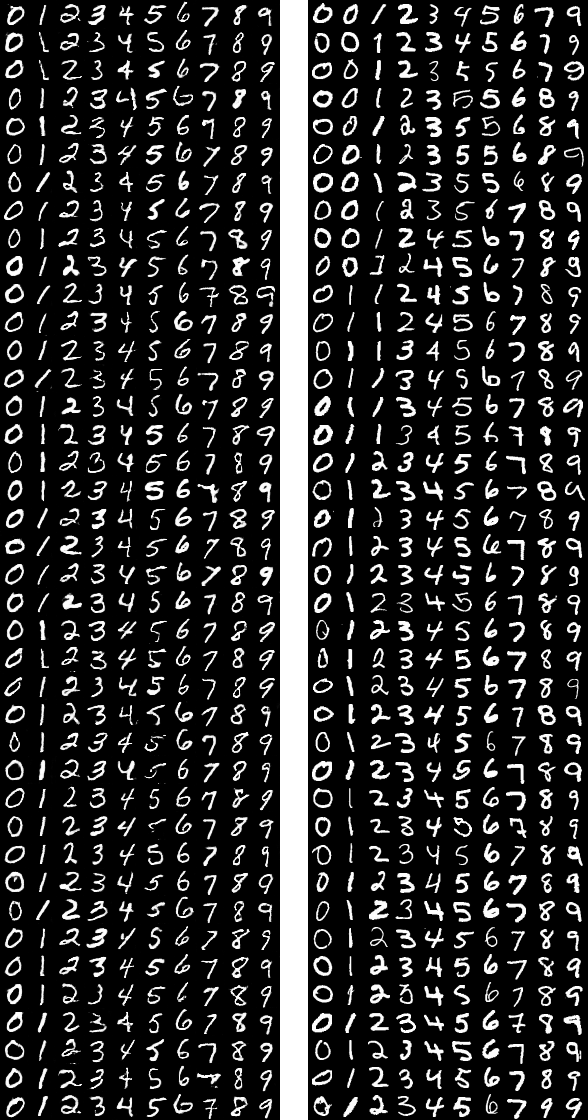 0 1 2 3 4 5 6 7 8 9
0 1 2 3 4 5 6 7 8 9
0 1 2 3 4 5 6 7 8 9
0 1 2 3 4 5 6 7 8 9
0 1 2 3 4 5 6 7 8 9
0 1 2 3 4 5 6 7 8 9
0 1 2 3 4 5 6 7 8 9
0 1 2 3 4 5 6 7 8 9
0 1 2 3 4 5 6 7 8 9
0 1 2 3 4 5 6 7 8 9
0 1 2 3 4 5 6 7 8 9
0 1 2 3 4 5 6 7 8 9
0 1 2 3 4 5 6 7 8 9
0 1 2 3 4 5 6 7 8 9
0 1 2 3 4 5 6 7 8 9
0 1 2 3 4 5 6 7 8 9
0 1 2 3 4 5 6 7 8 9
0 1 2 3 4 5 6 7 8 9
0 1 2 3 4 5 6 7 8 9
0 1 2 3 4 5 6 7 8 9
0 1 2 3 4 5 6 7 8 9
0 1 2 3 4 5 6 7 8 9
0 1 2 3 4 5 6 7 8 9
0 1 2 3 4 5 6 7 8 9
0 1 2 3 4 5 6 7 8 9
0 1 2 3 4 5 6 7 8 9
0 1 2 3 4 5 6 7 8 9
0 1 2 3 4 5 6 7 8 9
0 1 2 3 4 5 6 7 8 9
0 1 2 3 4 5 6 7 8 9
0 1 2 3 4 5 6 7 8 9
0 1 2 3 4 5 6 7 8 9
0 1 2 3 4 5 6 7 8 9
0 1 2 3 4 5 6 7 8 9
0 1 2 3 4 5 6 7 8 9
0 1 2 3 4 5 6 7 8 9
0 1 2 3 4 5 6 7 8 9
0 1 2 3 4 5 6 7 8 9
0 1 2 3 4 5 6 7 8 9
0 1 2 3 4 5 6 7 8 9
0 0 1 2 3 4 5 6 7 9
0 0 1 2 3 4 5 6 7 9
0 0 1 2 3 5 5 6 7 9
0 0 1 2 3 5 5 6 8 9
0 0 1 2 3 5 5 6 8 9
0 0 1 2 3 5 5 6 8 9
0 0 1 2 3 5 5 6 8 9
0 0 1 2 3 5 6 7 8 9
0 0 1 2 4 5 6 7 8 9
0 0 1 2 4 5 6 7 8 9
0 1 1 2 4 5 6 7 8 9
0 1 1 2 4 5 6 7 8 9
0 1 1 3 4 5 6 7 8 9
0 1 1 3 4 5 6 7 8 9
0 1 1 3 4 5 6 7 8 9
0 1 1 3 4 5 6 7 8 9
0 1 2 3 4 5 6 7 8 9
0 1 2 3 4 5 6 7 8 9
0 1 2 3 4 5 6 7 8 9
0 1 2 3 4 5 6 7 8 9
0 1 2 3 4 5 6 7 8 9
0 1 2 3 4 5 6 7 8 9
0 1 2 3 4 5 6 7 8 9
0 1 2 3 4 5 6 7 8 9
0 1 2 3 4 5 6 7 8 9
0 1 2 3 4 5 6 7 8 9
0 1 2 3 4 5 6 7 8 9
0 1 2 3 4 5 6 7 8 9
0 1 2 3 4 5 6 7 8 9
0 1 2 3 4 5 6 7 8 9
0 1 2 3 4 5 6 7 8 9
0 1 2 3 4 5 6 7 8 9
0 1 2 3 4 5 6 7 8 9
0 1 2 3 4 5 6 7 8 9
0 1 2 3 4 5 6 7 8 9
0 1 2 3 4 5 6 7 8 9
0 1 2 3 4 5 6 7 8 9
0 1 2 3 4 5 6 7 8 9
0 1 2 3 4 5 6 7 8 9
0 1 2 3 4 5 6 7 9 9